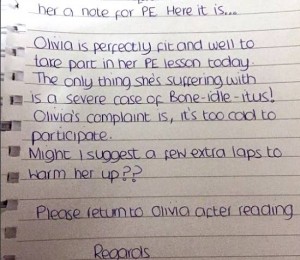 her a note for PE Here it is...
Olivia is perfectly fit and well to
take part in her PE lesson today.
The only thing she's suffering with
is a severe case of Bone-idle-itus!
Olivia's complaint is, it's too cold to
participate.
Might I suggest a few extra laps to
warm her up??
Please return to Olivia after reading
Regards